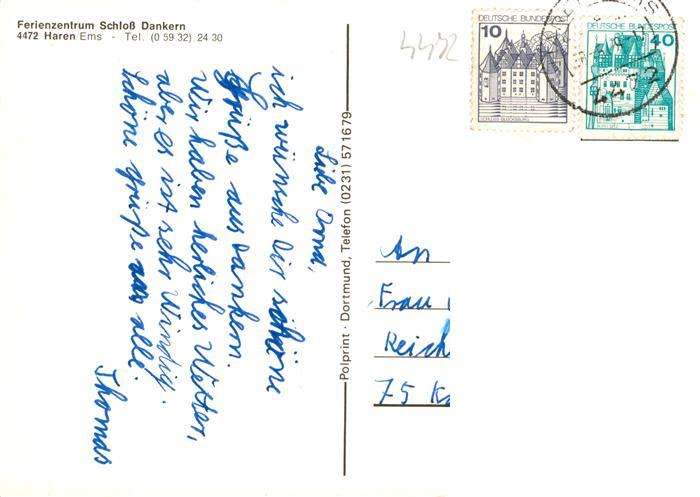 Ferienzentrum Schloß Dankern
4472 Haren Ems - Tel. (0 59 32) 24 30
4472
10
DEUTSCHE BUNDESPOST
SCHLOSS GLÜCKSBURG
40
DEUTSCHE BUNDESPOST
Liebe Oma,
ich wünsche Dir schöne
Grüße aus Dankern.
Wir haben herliches Wetter,
aber es ist sehr Windig.
Schöne grüße an alle.
Thomas
Polprint · Dortmund, Telefon (0231) 571679
An
Frau
Reich
75 Ka